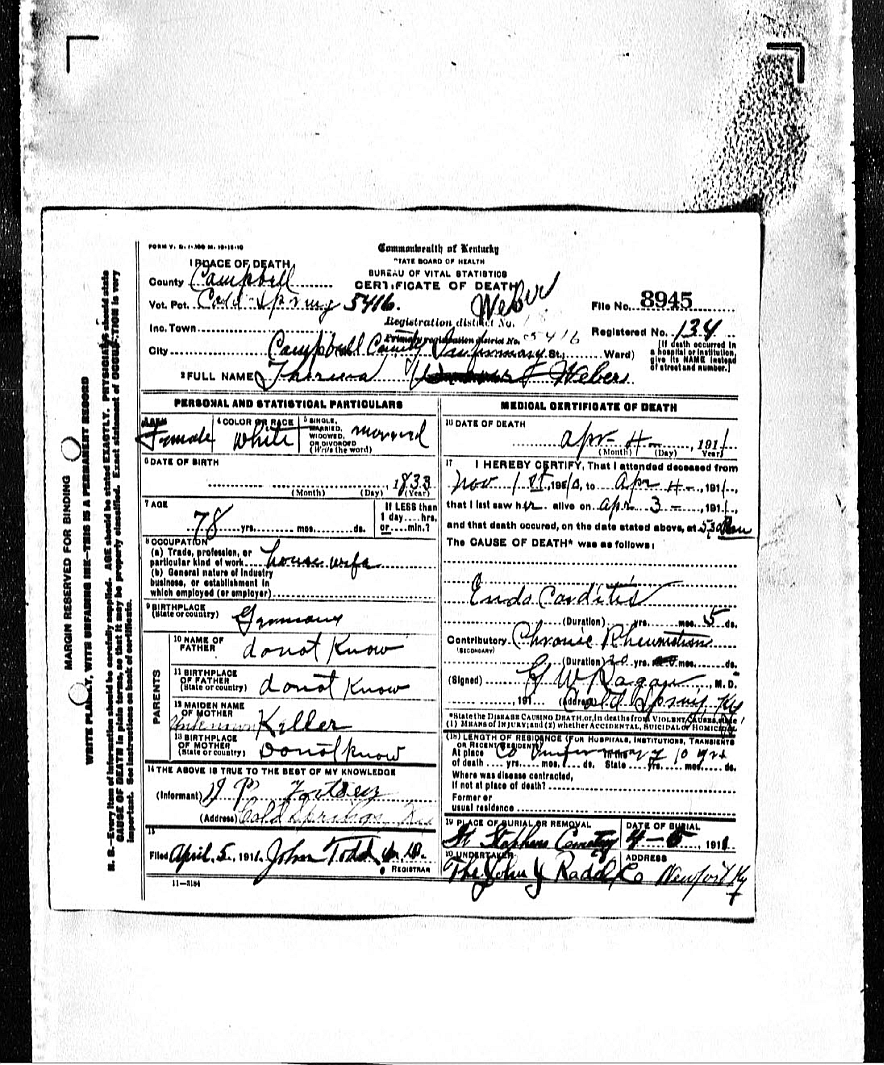 FORM V. S. 1-100 M. 10-15-10
Commonwealth of Kentucky
STATE BOARD OF HEALTH
BUREAU OF VITAL STATISTICS
CERTIFICATE OF DEATH
1 PLACE OF DEATH
County Campbell
Vot. Pct. Cold Spring 5416.
Weber
File No. 8945
Registration district No.
Inc. Town
Primary registration district No. 5416
Registered No. 134
City Campbell County Infirmary St., Ward)
[If death occurred in a hospital or institution, give its NAME instead of street and number.]
2 FULL NAME Theresa Webers
PERSONAL AND STATISTICAL PARTICULARS
SEX Female
4 COLOR OR RACE White
5 SINGLE, MARRIED, WIDOWED, OR DIVORCED (Write the word) married
6 DATE OF BIRTH
1833
(Month) (Day) (Year)
7 AGE
78 yrs. mos. ds.
If LESS than 1 day....hrs. or....min.?
8 OCCUPATION
(a) Trade, profession, or particular kind of work house wife
(b) General nature of industry business, or establishment in which employed (or employer)
9 BIRTHPLACE (State or country) Germany
PARENTS
10 NAME OF FATHER do not Know
11 BIRTHPLACE OF FATHER (State or country) do not Know
12 MAIDEN NAME OF MOTHER Unknown Killer
13 BIRTHPLACE OF MOTHER (State or country) Do not know
14 THE ABOVE IS TRUE TO THE BEST OF MY KNOWLEDGE
(Informant) J P
(Address) Cold Springs Ky
15
Filed April 5, 1911. John Todd M. D.
REGISTRAR
11—3184
MEDICAL CERTIFICATE OF DEATH
16 DATE OF DEATH
Apr 4 — , 1911
(Month) (Day) (Year)
17 I HEREBY CERTIFY, That I attended deceased from
Nov 1st, 1910, to Apr 4 — , 1911.,
that I last saw her alive on Apr 3 — , 1911.,
and that death occured, on the date stated above, at 5,30 m
The CAUSE OF DEATH* was as follows:
Endo Carditis
(Duration) yrs. mos. 5 ds.
Contributory (SECONDARY) Chronic Rheumatism
(Duration) 20 yrs. mos. ds.
(Signed) G W Ragan, M. D.
, 191 (Address) Cold Spring Ky
*State the DISEASE CAUSING DEATH, or, in deaths from VIOLENT CAUSES, state (1) MEANS OF INJURY; and (2) whether ACCIDENTAL, SUICIDAL or HOMICIDAL
(18) LENGTH OF RESIDENCE (FOR HOSPITALS, INSTITUTIONS, TRANSIENTS OR RECENT RESIDENTS)
At place of death Co Infirmary yrs. mos. ds. In the State 10 yrs. mos. ds.
Where was disease contracted, If not at place of death?
Former or usual residence
19 PLACE OF BURIAL OR REMOVAL St Stephens Cemetery
DATE OF BURIAL 4-6, 1911
20 UNDERTAKER The John J Radel Co
ADDRESS Newport Ky
MARGIN RESERVED FOR BINDING
WRITE PLAINLY, WITH UNFADING INK—THIS IS A PERMANENT RECORD
N. B.—Every item of information should be carefully supplied. AGE should be stated EXACTLY. PHYSICIANS should state CAUSE OF DEATH in plain terms, so that it may be properly classified. Exact statement of OCCUPATION is very important. See instructions on back of certificate.